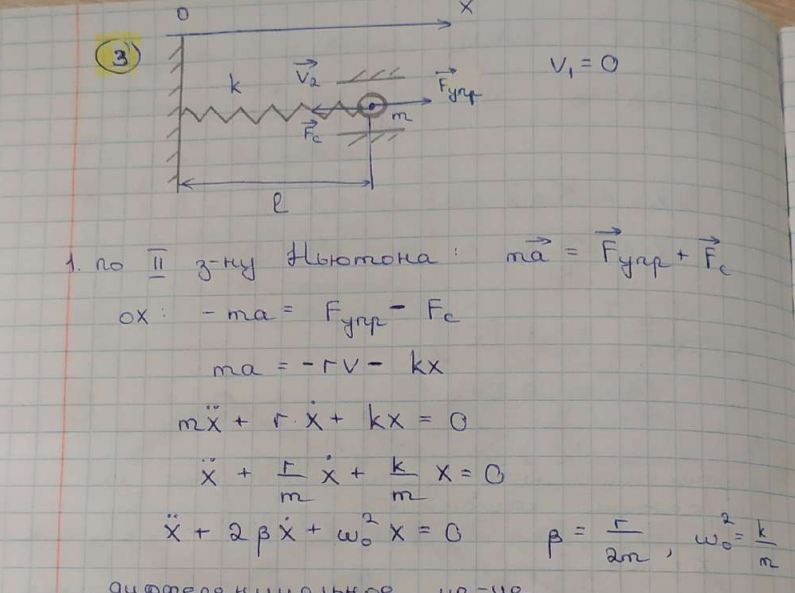 0 x
3
V₁ = 0
k V⃗₂ F⃗упр
F⃗c m
ℓ
1. по II з-ну Ньютона: ma⃗ = F⃗упр + F⃗c
ox: - ma = Fупр - Fc
ma = - rv - kx
mẍ + r·ẋ + kx = 0
ẍ + r/m ẋ + k/m x = 0
ẍ + 2βẋ + ω₀² x = 0 β = r/2m, ω₀² = k/m